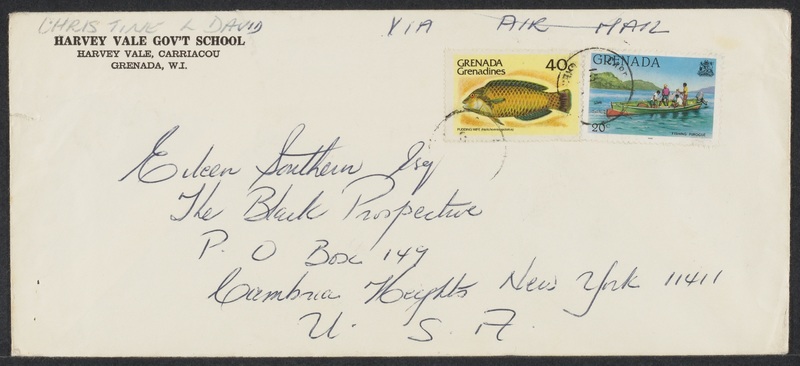 CHRISTINE L DAVID
HARVEY VALE GOV'T SCHOOL
HARVEY VALE, CARRIACOU
GRENADA, W.I.
VIA AIR MAIL
GRENADA
Grenadines
40¢
GRENADA
20¢
Eileen Southern Esq
The Black Prospective
P. O Box 149
Cambria Heights New York 11411
U. S. A.